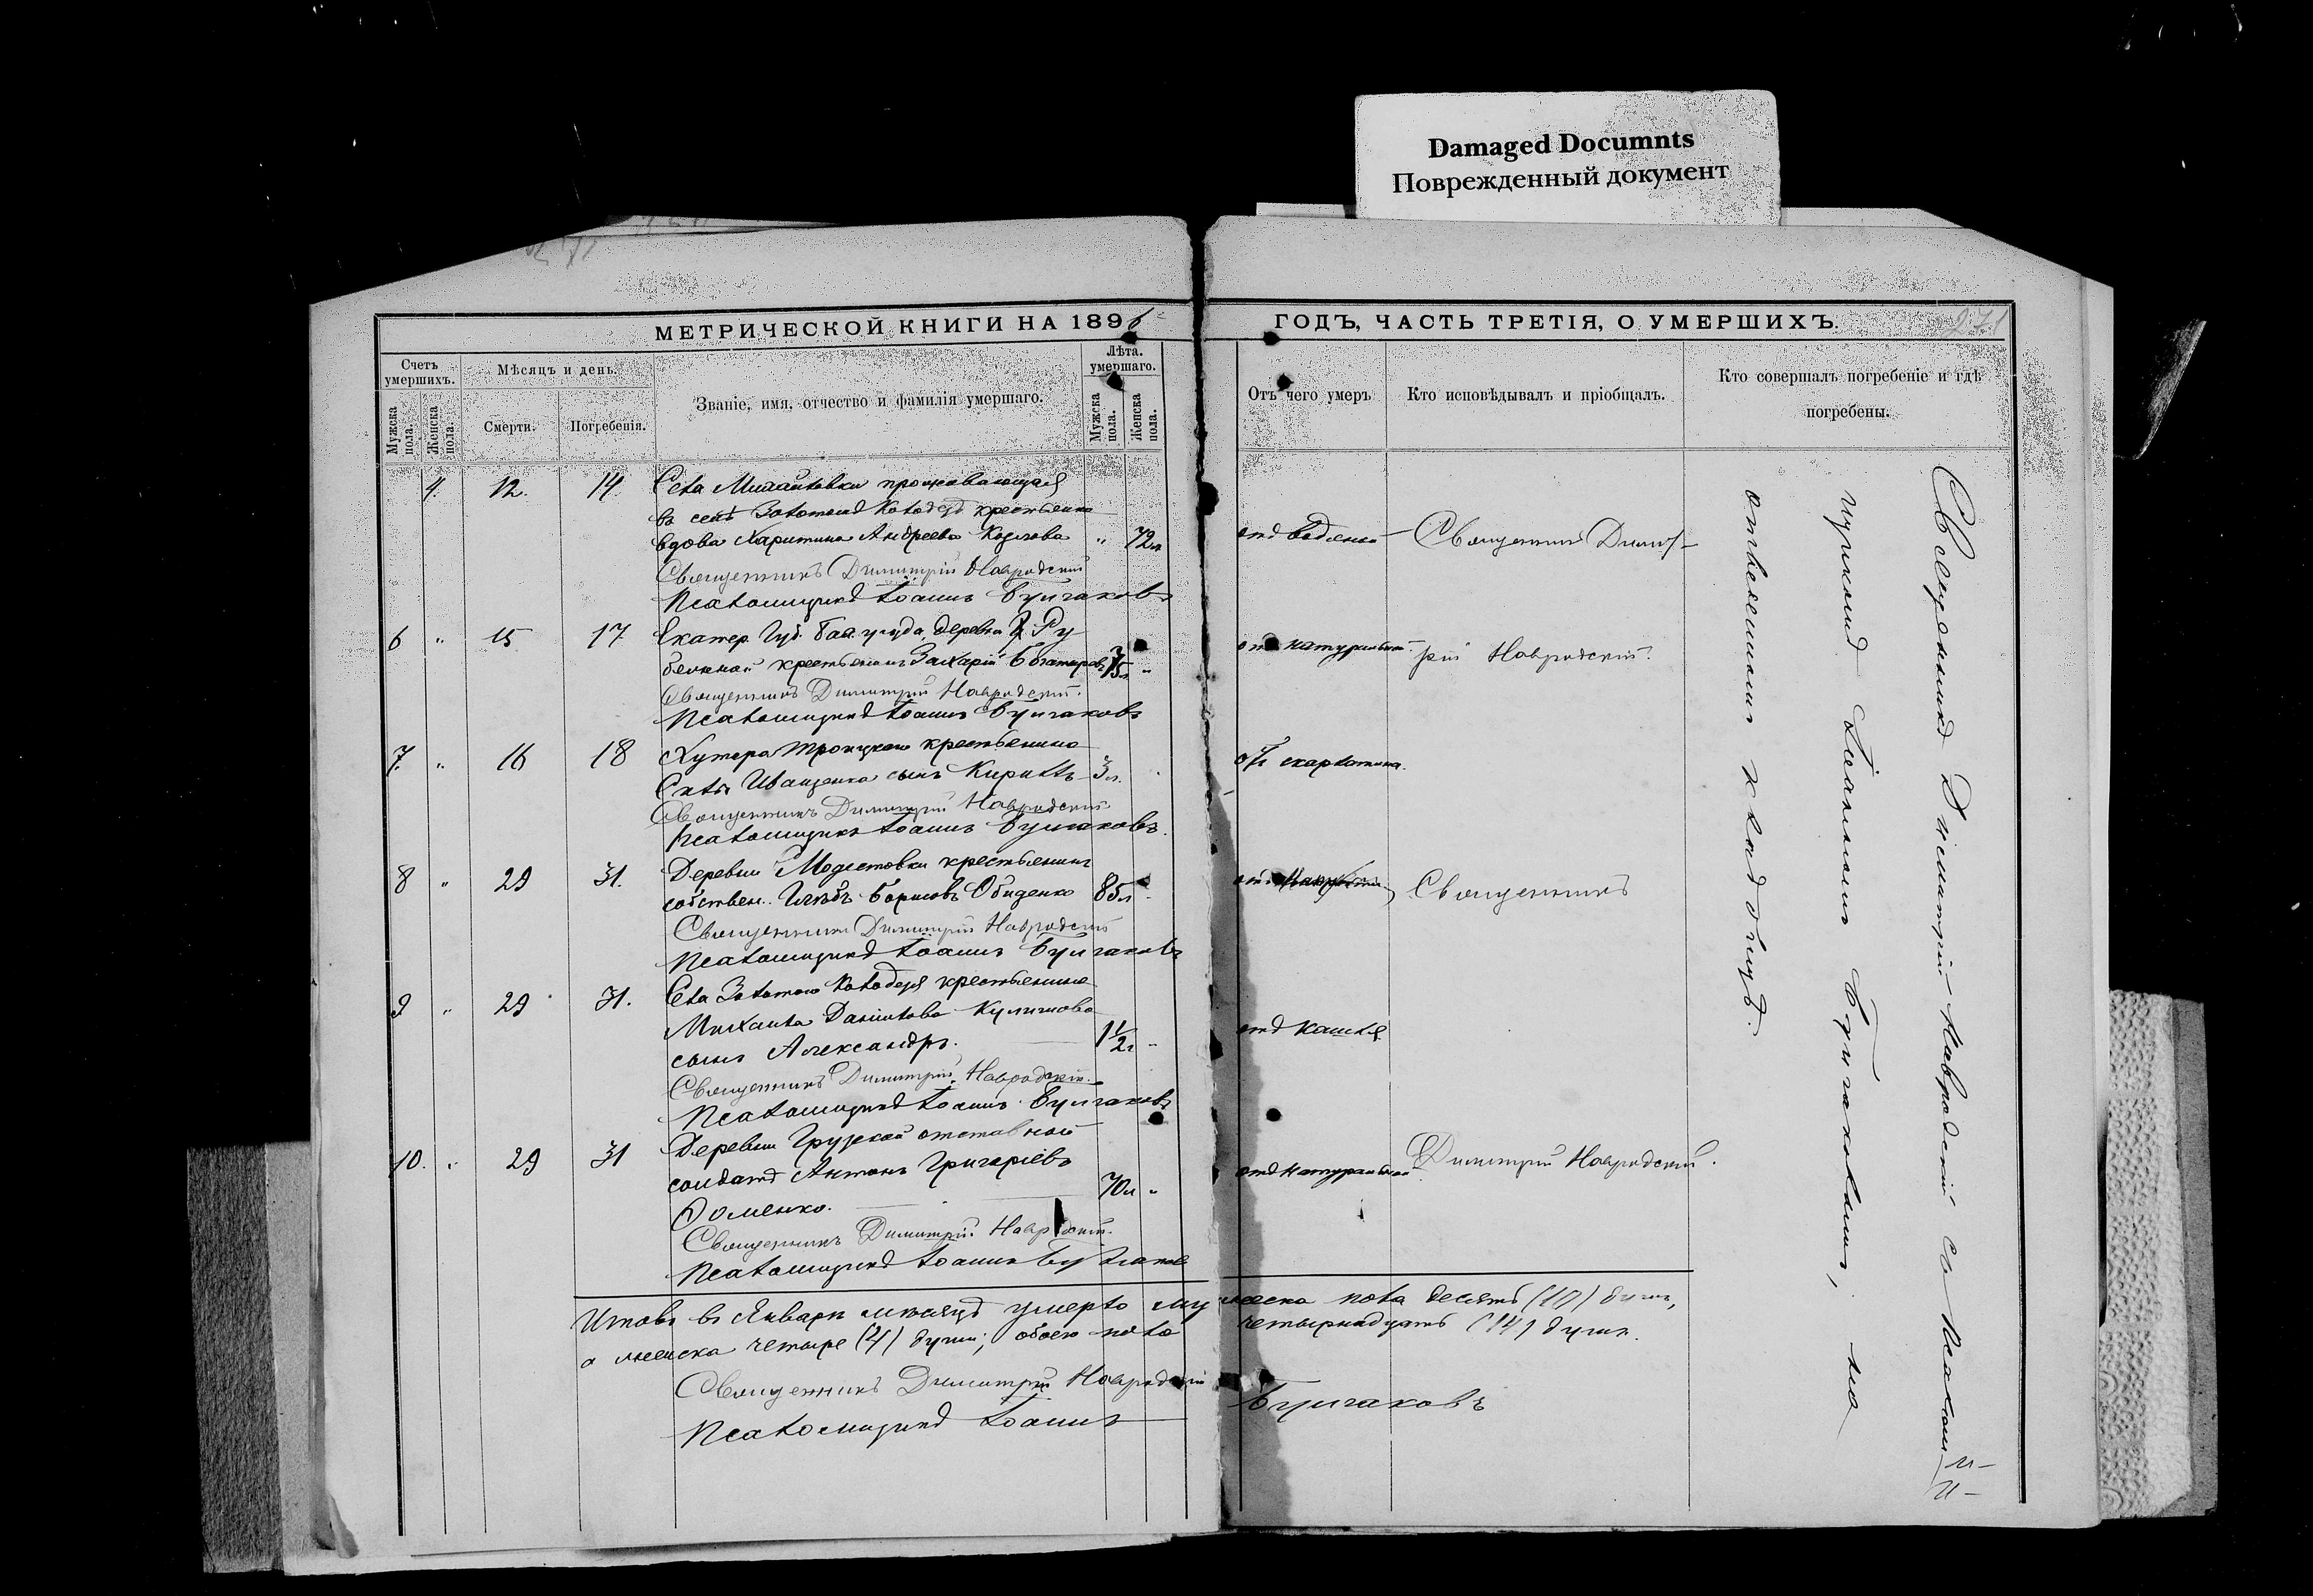 Damaged Documnts
Поврежденный документ
МЕТРИЧЕСКОЙ КНИГИ НА 1896
ГОДЪ, ЧАСТЬ ТРЕТІЯ, О УМЕРШИХЪ.
271
Счетъ умершихъ.
Мужска пола.
Женска пола.
Мѣсяцъ и день.
Смерти.
Погребенія.
Званіе, имя, отчество и фамилія умершаго.
Лѣта. умершаго.
Мужска пола.
Женска пола.
Отъ чего умеръ
Кто исповѣдывалъ и пріобщалъ.
Кто совершалъ погребеніе и гдѣ
погребены.
4. 12. 14. Села Михайловки проживающая
въ селѣ Золотомъ Колодезѣ крестьянка
вдова Харитина Андреева Козлова " 72л
отъ водяной
Священникъ Димит-
Священникъ Димитрій Навродскій
Псаломщикъ Іоаннъ Булгаковъ
6 " 15 17 Екатер. Губ. Бах. уѣзда, деревни Ру
крестьянинъ Захарій 75л "
отъ натуральной
рій Навродскій.
Священникъ Димитрій Навродскій.
Псаломщикъ Іоаннъ Булгаковъ
7. " 16 18 Хутора Троицкаго крестьянина
Иващенка сынъ Кириллъ 3л.
отъ скарлатина.
Священникъ Димитрій Навродскій
Псаломщикъ Іоаннъ Булгаковъ.
8 " 29 31. Деревни Модестовки крестьянинъ
собствен. Глѣбъ Борисовъ Обиденко 85л
отъ
Священникъ
Священникъ Димитрій Навродскій
Псаломщикъ Іоаннъ Булгаковъ
9 " 29 31. Села Золотого Колодезя крестьянина
Михаила Даніилова
сынъ Александръ. 1½г "
отъ кашля
Священникъ Димитрій Навродскій.
Псаломщикъ Іоаннъ Булгаковъ
10. " 29 31 Деревни Грузской отставной
солдатъ Антонъ Григоріевъ
Фоменко. 70л "
отъ натуральной
Димитрій Навродскій.
Священникъ Димитрій Навродскій.
Псаломщикъ Іоаннъ Булгаковъ
Итого въ Январѣ мѣсяцѣ умерло мужеска пола десять (10) душъ,
а женска четыре (4) души; обоего пола четырнадцать (14) душъ.
Священникъ Димитрій Навродскій
Псаломщикъ Іоаннъ Булгаковъ
Священникъ Димитрій Навродскій съ Псалом-
щикомъ Іоанномъ Булгаковымъ, на
кладбищѣ.